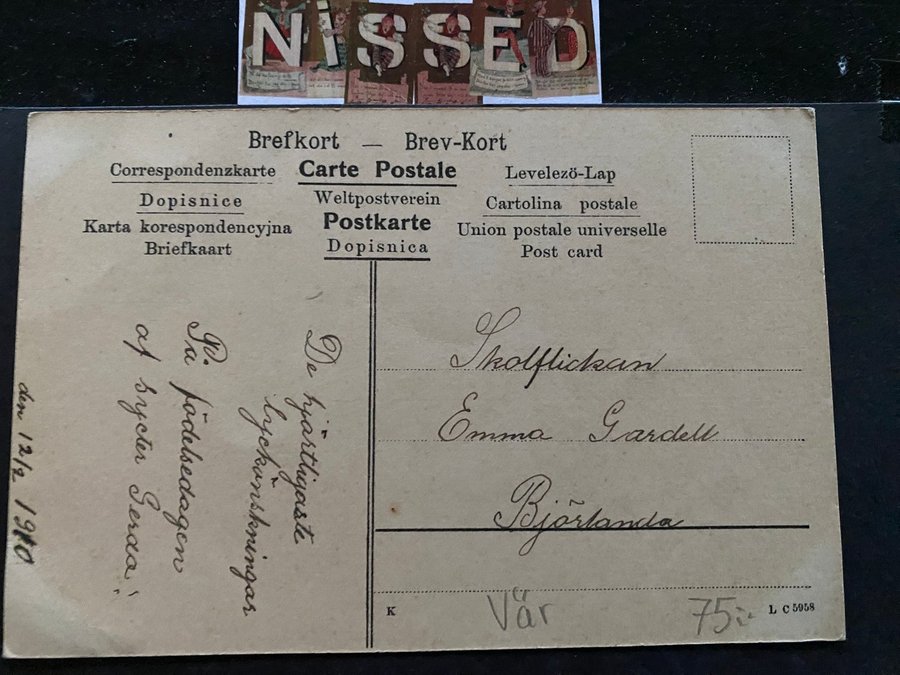 NiSSED
Brefkort — Brev-Kort
Correspondenzkarte Carte Postale Levelezö-Lap
Dopisnice Weltpostverein Cartolina postale
Karta korespondencyjna Postkarte Union postale universelle
Briefkaart Dopisnica Post card
De hjärtligaste
lyckönskningar
På födelsedagen
af syster Gerda
den 12/2 1910
Skolflickan
Emma Gardell
Björlanda
K Vär 75:- L C 5958